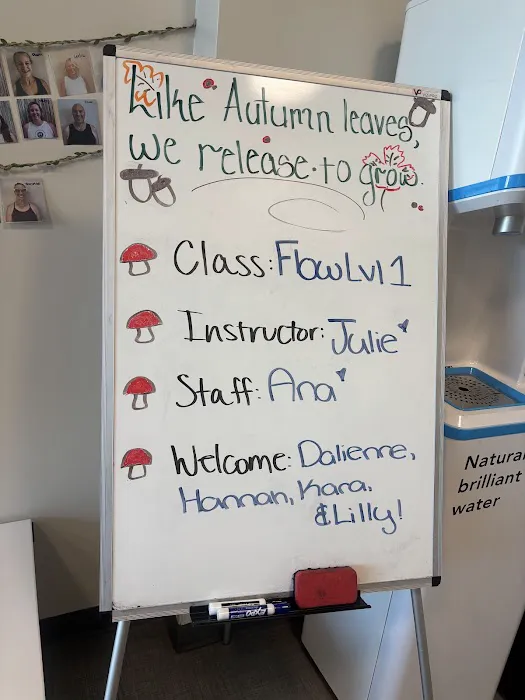 Like Autumn leaves,
we release to grow.
Class: Flow Lvl 1
Instructor: Julie
Staff: Ana
Welcome: Dalienne,
Hannah, Kara,
& Lilly!
EXPO
Natural
brilliant
water